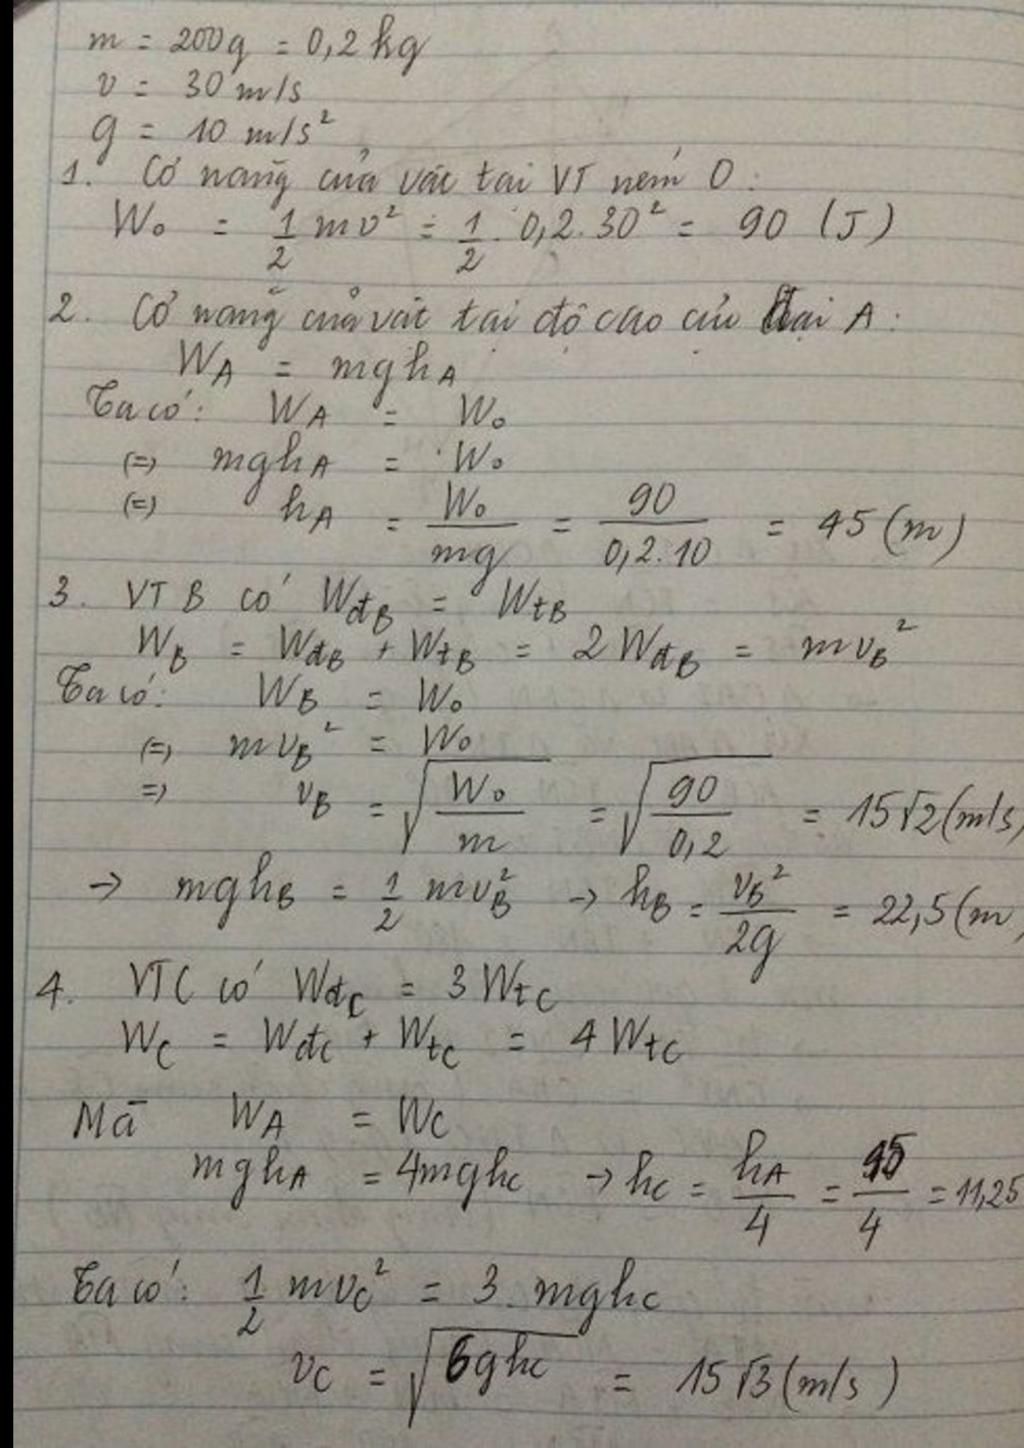 m = 200g = 0,2 kg
v = 30 m/s
g = 10 m/s²
1. Cơ năng của vật tại VT ném O:
W₀ = 1/2 mv² = 1/2 . 0,2 . 30² = 90 (J)
2. Cơ năng của vật tại độ cao cực đại A:
W_A = mgh_A
Ta có: W_A = W₀
(=) mgh_A = W₀
(=) h_A = W₀/mg = 90/0,2.10 = 45 (m)
3. VT B có W_đB = W_tB
W_B = W_đB + W_tB = 2W_đB = mv_B²
Ta có: W_B = W₀
(=) mv_B² = W₀
=) v_B = √(W₀/m) = √(90/0,2) = 15√2 (m/s)
→ mgh_B = 1/2 mv_B² → h_B = v_B²/2g = 22,5 (m
4. VT C có W_đC = 3W_tC
W_C = W_đC + W_tC = 4W_tC
Mà W_A = W_C
mgh_A = 4mgh_C → h_C = h_A/4 = 45/4 = 11,25
Ta có: 1/2 mv_C² = 3.mgh_C
v_C = √(6gh_C) = 15√3 (m/s)